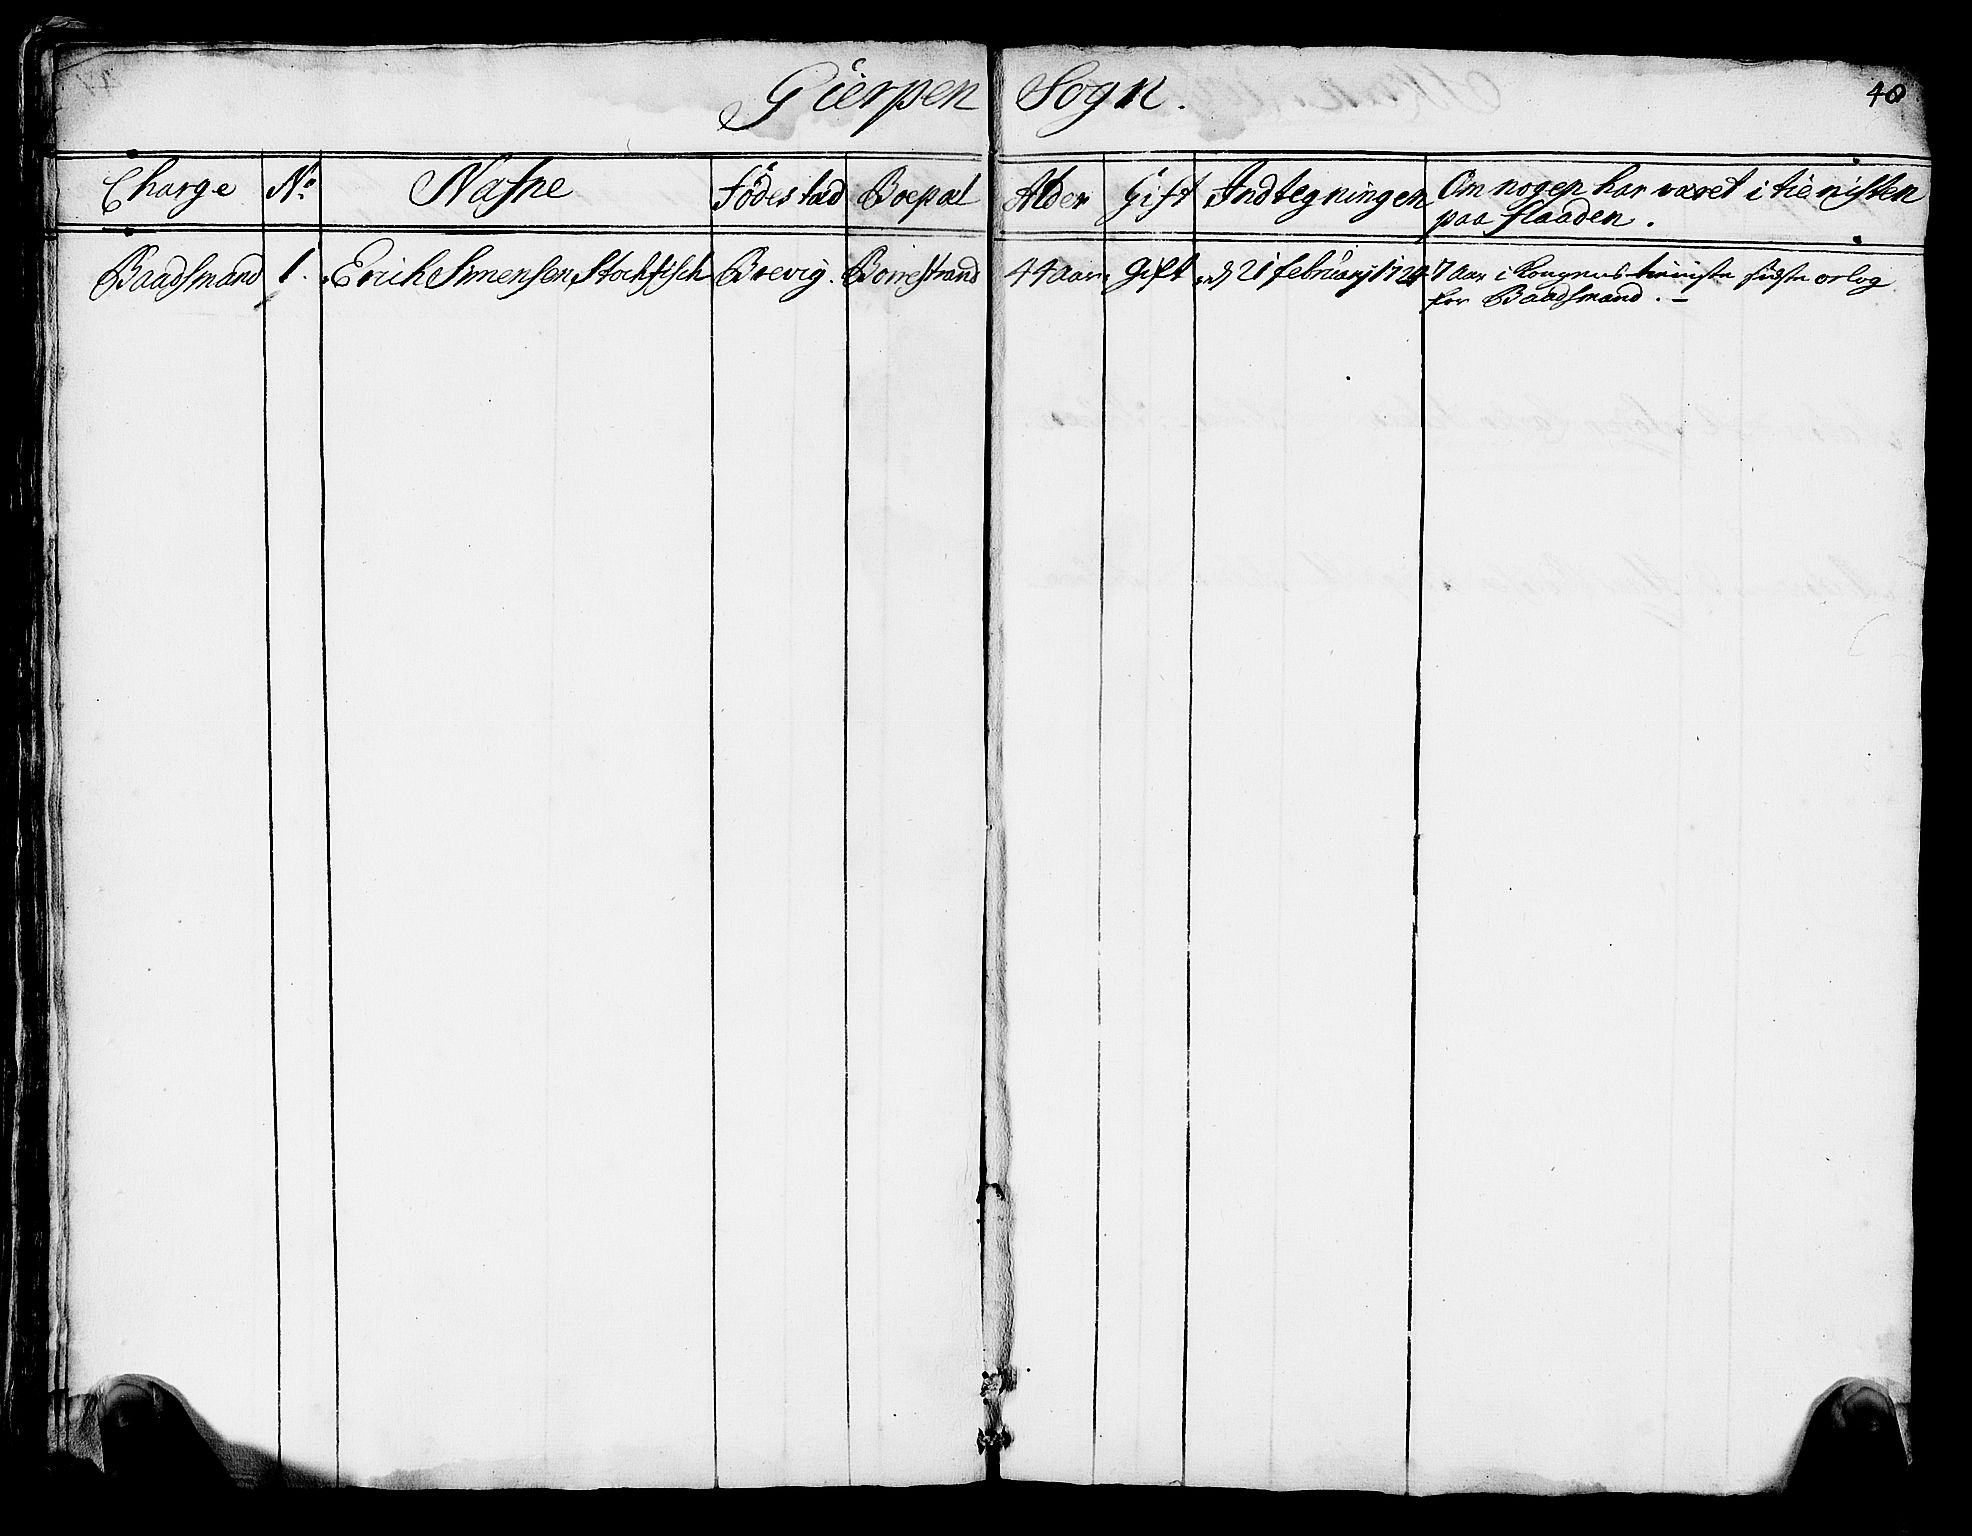 Gierpen Sogn.
40
Charge No. Nafne Födestæd Boepæl Alder Gift Indtegningen Om nogen har været i tienisten
paa flaaden.
Baadsmand 1. Erich Simensen Stochfisch Brevig. Borrestrand 44 aar. Gift d 21 februarj 1724 7 aar i Kongens tieniste sidste orlog
for Baadsmand. –